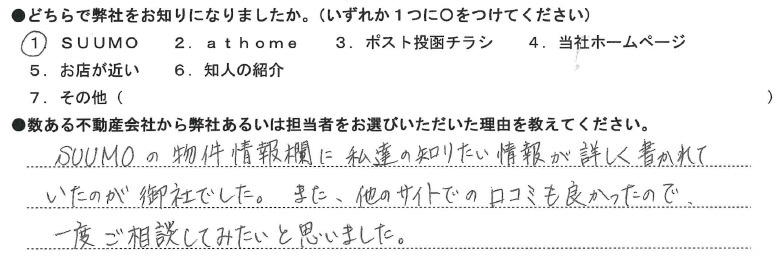 ●どちらで弊社をお知りになりましたか。（いずれか１つに○をつけてください）
１ ＳＵＵＭＯ　２．ａｔｈｏｍｅ　３．ポスト投函チラシ　４．当社ホームページ
５．お店が近い　６．知人の紹介
７．その他（　）
●数ある不動産会社から弊社あるいは担当者をお選びいただいた理由を教えてください。
SUUMOの物件情報欄に私達の知りたい情報が詳しく書かれて
いたのが御社でした。また、他のサイトでの口コミも良かったので、
一度ご相談してみたいと思いました。